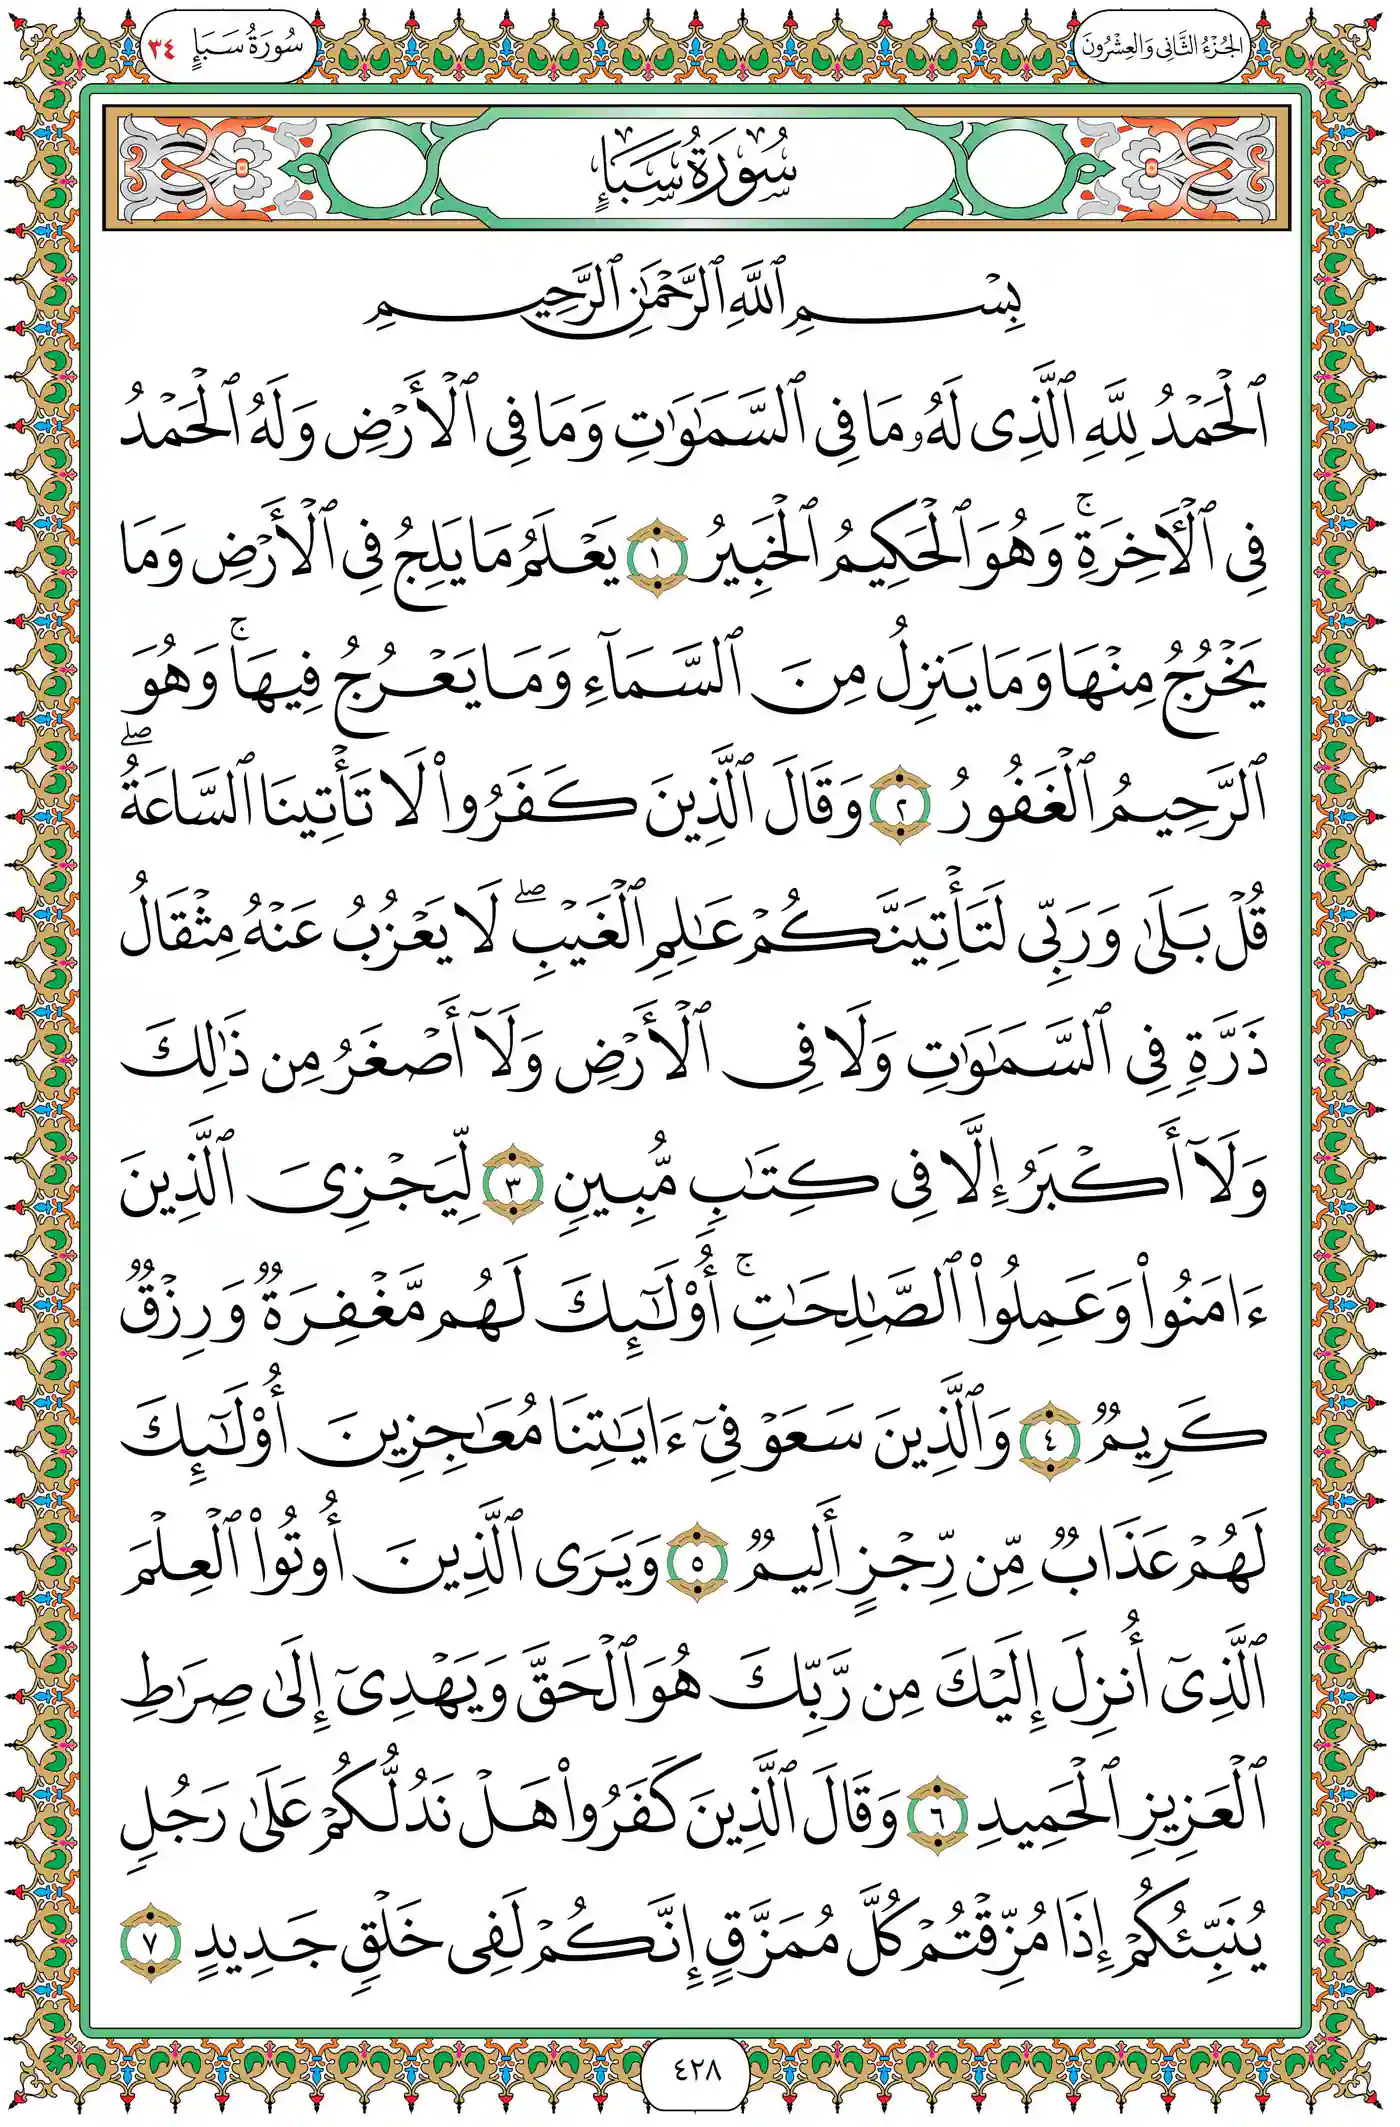 الجُزْءُ الثَّانِي وَالعِشْرُونَ
سُورَةُ سَبَإٍ ٣٤
سُورَةُ سَبَإٍ
بِسْمِ ٱللَّهِ ٱلرَّحْمَٰنِ ٱلرَّحِيمِ
ٱلْحَمْدُ لِلَّهِ ٱلَّذِى لَهُۥ مَا فِى ٱلسَّمَٰوَٰتِ وَمَا فِى ٱلْأَرْضِ وَلَهُ ٱلْحَمْدُ
فِى ٱلْأٓخِرَةِۚ وَهُوَ ٱلْحَكِيمُ ٱلْخَبِيرُ ١ يَعْلَمُ مَا يَلِجُ فِى ٱلْأَرْضِ وَمَا
يَخْرُجُ مِنْهَا وَمَا يَنزِلُ مِنَ ٱلسَّمَآءِ وَمَا يَعْرُجُ فِيهَاۚ وَهُوَ
ٱلرَّحِيمُ ٱلْغَفُورُ ٢ وَقَالَ ٱلَّذِينَ كَفَرُوا۟ لَا تَأْتِينَا ٱلسَّاعَةُۖ
قُلْ بَلَىٰ وَرَبِّى لَتَأْتِيَنَّكُمْ عَٰلِمِ ٱلْغَيْبِۖ لَا يَعْزُبُ عَنْهُ مِثْقَالُ
ذَرَّةٍ فِى ٱلسَّمَٰوَٰتِ وَلَا فِى ٱلْأَرْضِ وَلَآ أَصْغَرُ مِن ذَٰلِكَ
وَلَآ أَكْبَرُ إِلَّا فِى كِتَٰبٍ مُّبِينٍ ٣ لِّيَجْزِىَ ٱلَّذِينَ
ءَامَنُوا۟ وَعَمِلُوا۟ ٱلصَّٰلِحَٰتِۚ أُو۟لَٰٓئِكَ لَهُم مَّغْفِرَةٌ وَرِزْقٌ
كَرِيمٌ ٤ وَٱلَّذِينَ سَعَوْ فِىٓ ءَايَٰتِنَا مُعَٰجِزِينَ أُو۟لَٰٓئِكَ
لَهُمْ عَذَابٌ مِّن رِّجْزٍ أَلِيمٌ ٥ وَيَرَى ٱلَّذِينَ أُوتُوا۟ ٱلْعِلْمَ
ٱلَّذِىٓ أُنزِلَ إِلَيْكَ مِن رَّبِّكَ هُوَ ٱلْحَقَّ وَيَهْدِىٓ إِلَىٰ صِرَٰطِ
ٱلْعَزِيزِ ٱلْحَمِيدِ ٦ وَقَالَ ٱلَّذِينَ كَفَرُوا۟ هَلْ نَدُلُّكُمْ عَلَىٰ رَجُلٍ
يُنَبِّئُكُمْ إِذَا مُزِّقْتُمْ كُلَّ مُمَزَّقٍ إِنَّكُمْ لَفِى خَلْقٍ جَدِيدٍ ٧
٤٢٨